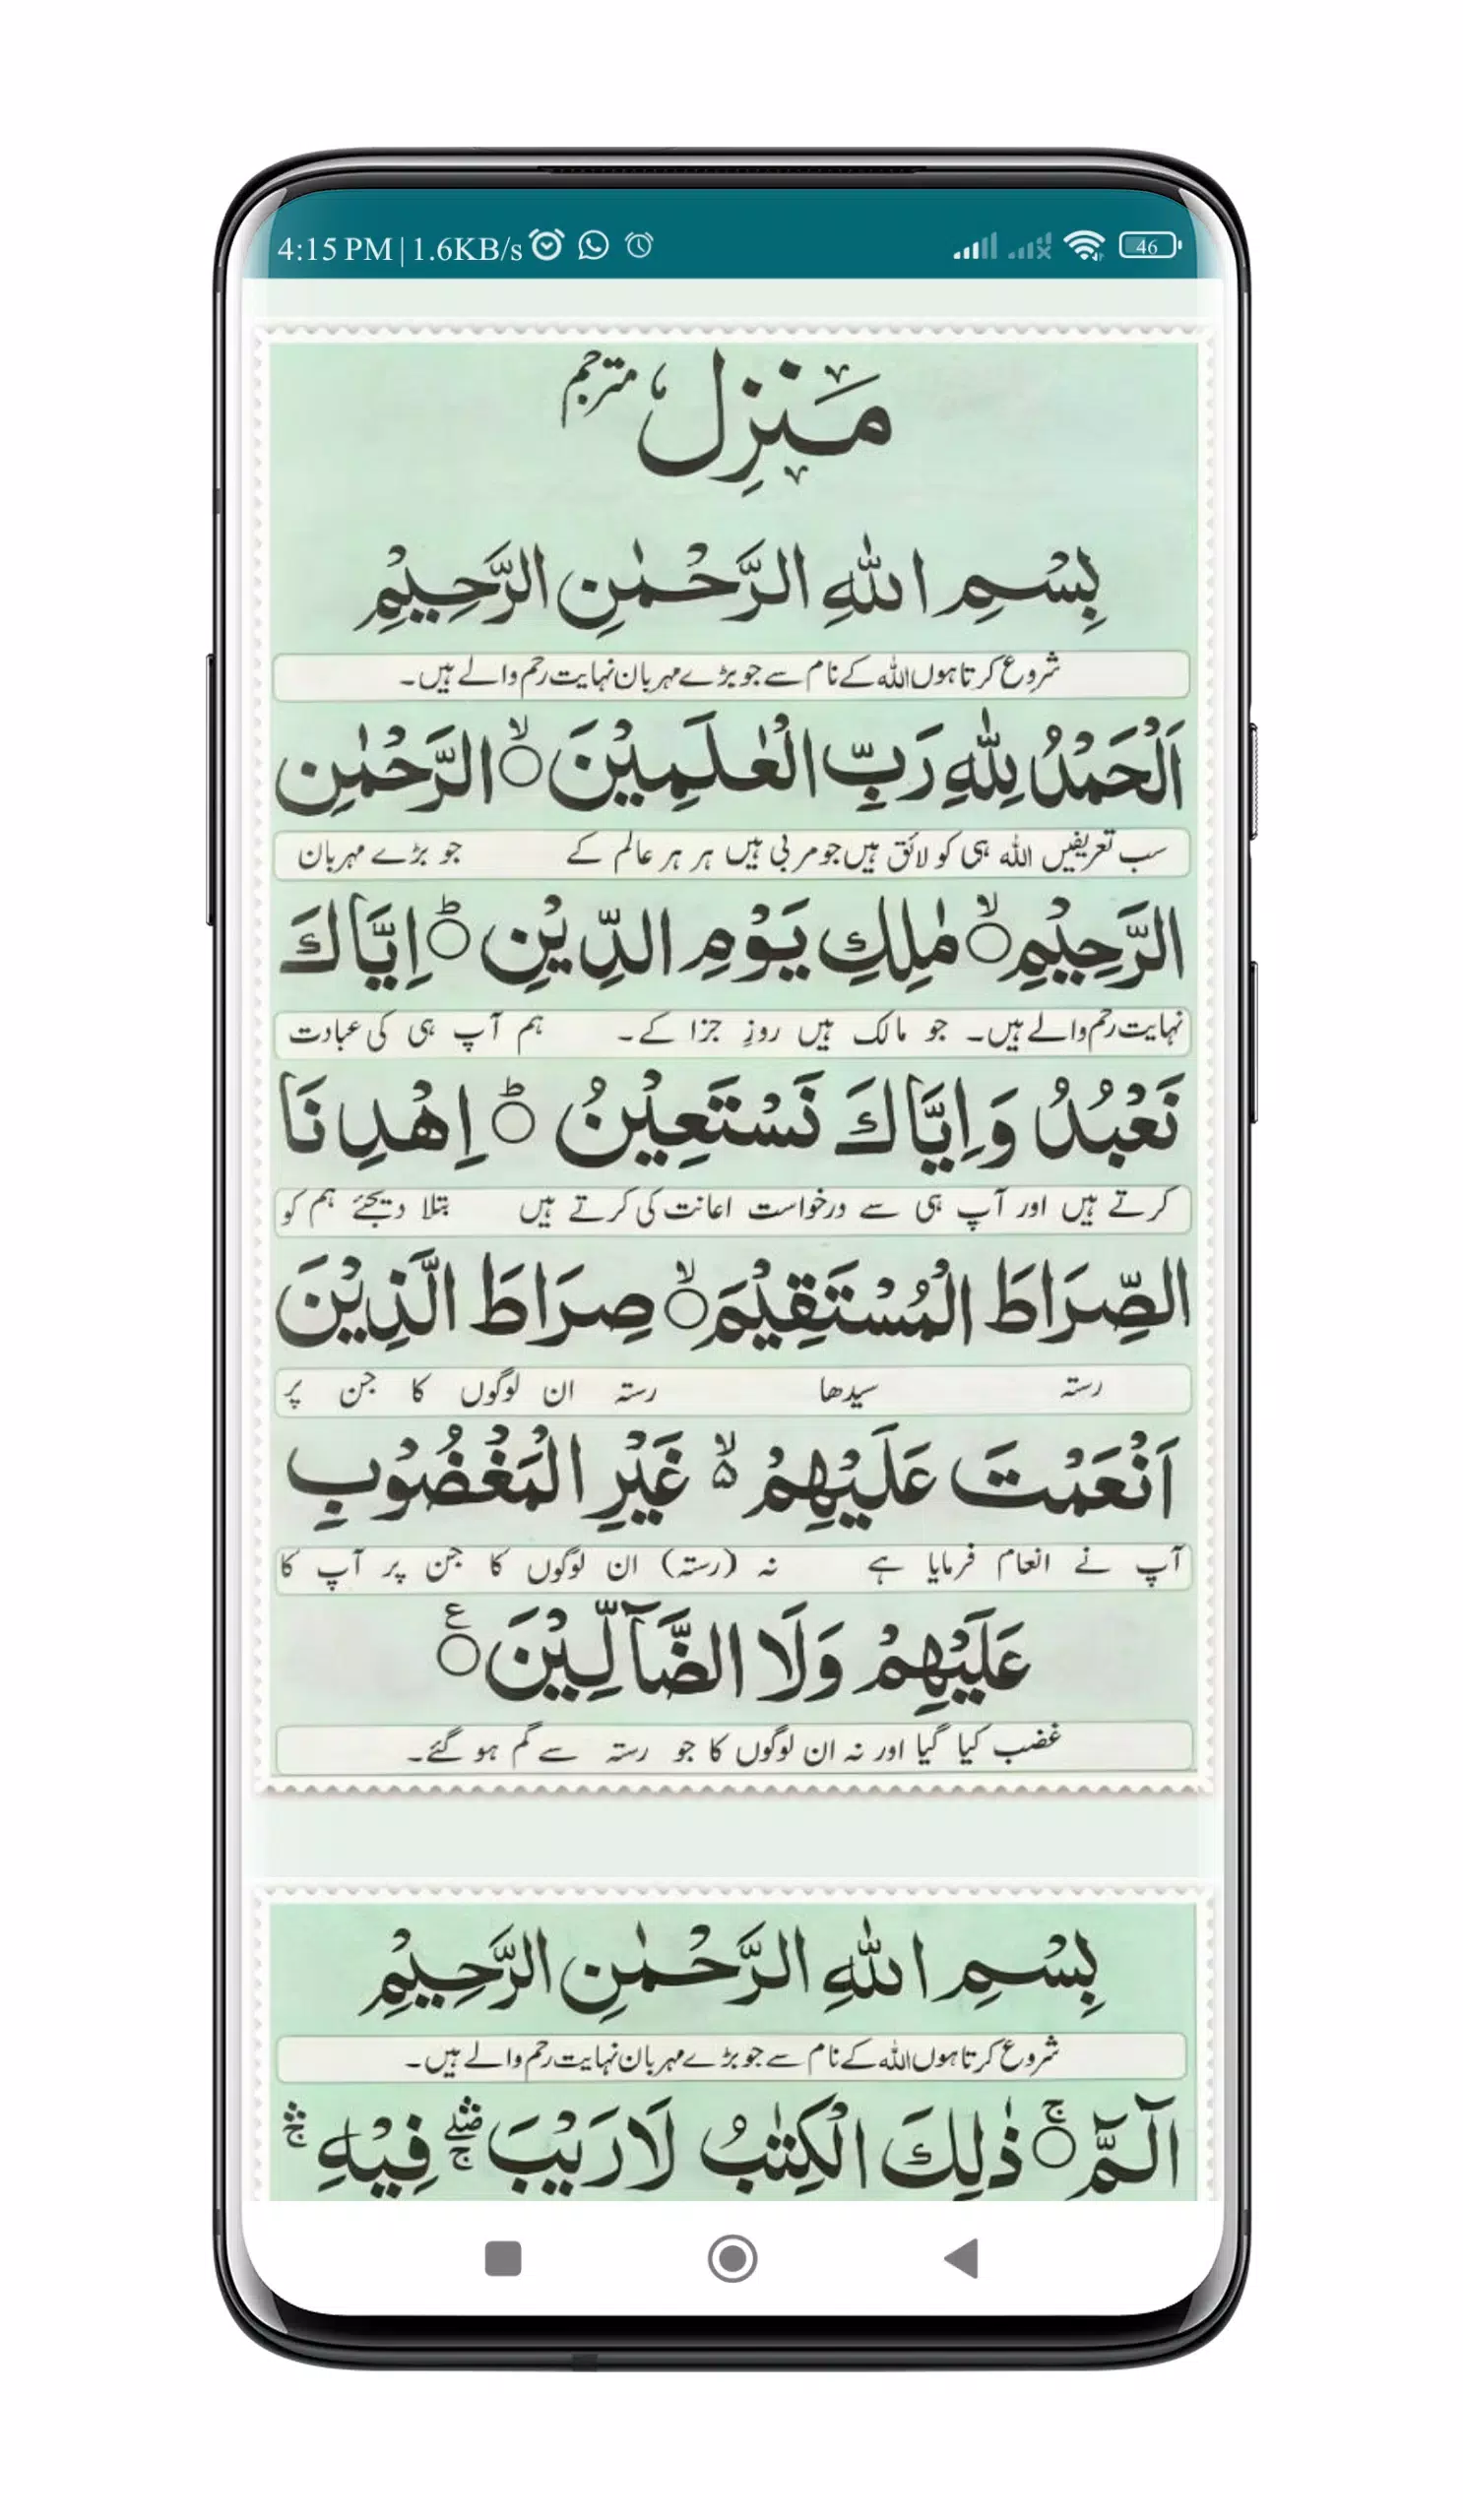 4:15 PM | 1.6KB/s 46
مَنْزِل مترجم
بِسْمِ اللهِ الرَّحْمٰنِ الرَّحِيْمِ
شروع کرتا ہوں اللہ کے نام سے جو بڑے مہربان نہایت رحم والے ہیں۔
اَلْحَمْدُ لِلّٰهِ رَبِّ الْعٰلَمِيْنَ ۙ الرَّحْمٰنِ
سب تعریفیں اللہ ہی کو لائق ہیں جو مربی ہیں ہر ہر عالم کے جو بڑے مہربان
الرَّحِيْمِ ۙ مٰلِكِ يَوْمِ الدِّيْنِ ؕ اِيَّاكَ
نہایت رحم والے ہیں۔ جو مالک ہیں روزِ جزا کے۔ ہم آپ ہی کی عبادت
نَعْبُدُ وَاِيَّاكَ نَسْتَعِيْنُ ؕ اِهْدِنَا
کرتے ہیں اور آپ ہی سے درخواست اعانت کی کرتے ہیں بتلا دیجئے ہم کو
الصِّرَاطَ الْمُسْتَقِيْمَ ۙ صِرَاطَ الَّذِيْنَ
رستہ سیدھا رستہ ان لوگوں کا جن پر
اَنْعَمْتَ عَلَيْهِمْ ۙ۵ غَيْرِ الْمَغْضُوْبِ
آپ نے انعام فرمایا ہے نہ (رستہ) ان لوگوں کا جن پر آپ کا
عَلَيْهِمْ وَلَا الضَّآلِّيْنَ ع
غضب کیا گیا اور نہ ان لوگوں کا جو رستہ سے گم ہو گئے۔
بِسْمِ اللهِ الرَّحْمٰنِ الرَّحِيْمِ
شروع کرتا ہوں اللہ کے نام سے جو بڑے مہربان نہایت رحم والے ہیں۔
الٓمّٓ ۚ ذٰلِكَ الْكِتٰبُ لَا رَيْبَ ۖۚ فِيْهِ ۛۚ